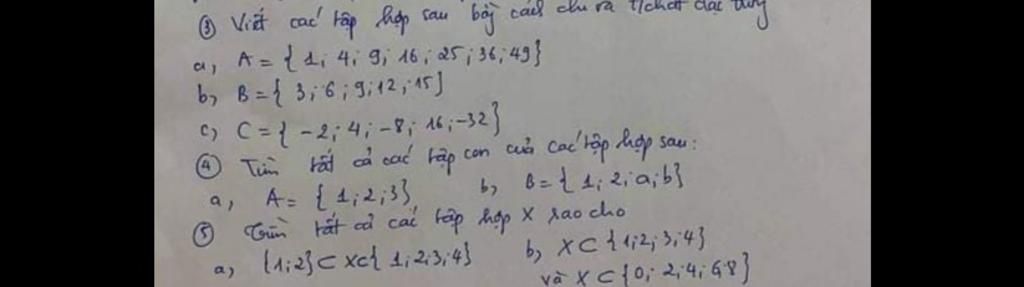 ③ Viết các tập hợp sau bằng cách chỉ ra t/chất đặc trưng
a, A = { 1; 4; 9; 16; 25; 36; 49}
b, B = { 3; 6; 9; 12; 15}
c, C = { -2; 4; -8; 16; -32}
④ Tìm tất cả các tập con của các tập hợp sau:
a, A = { 1; 2; 3} b, B = { 1; 2; a; b}
⑤ Tìm tất cả các tập hợp X sao cho
a, {1; 2} ⊂ X ⊂ { 1; 2; 3; 4} b, X ⊂ {1; 2; 3; 4}
và X ⊂ {0; 2; 4; 6; 8}